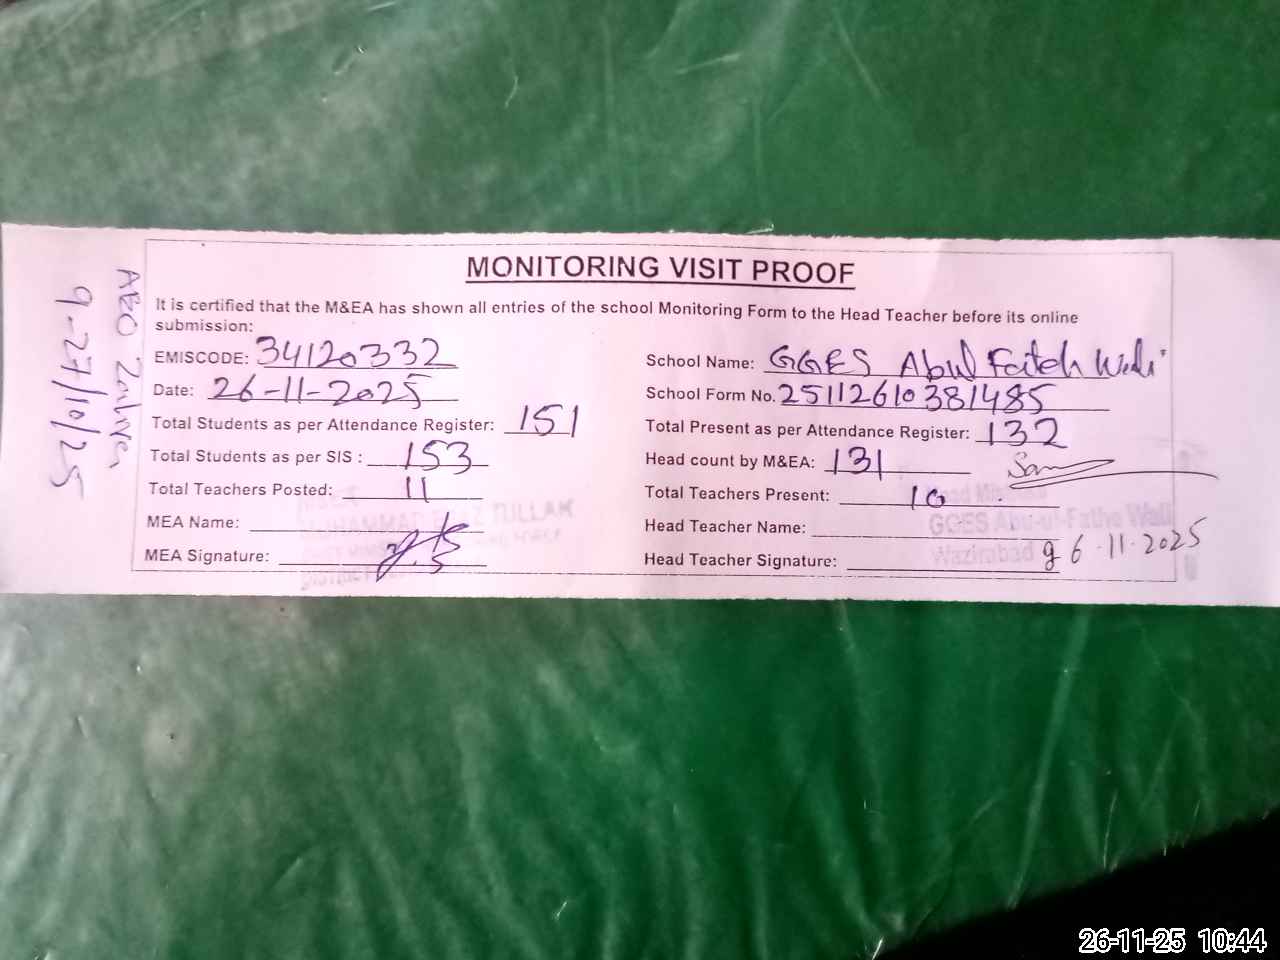 MONITORING VISIT PROOF
It is certified that the M&EA has shown all entries of the school Monitoring Form to the Head Teacher before its online
submission:
EMISCODE: 34120332
School Name: GGES Abul Fateh Wali
Date: 26-11-2025
School Form No. 25112610381485
Total Students as per Attendance Register: 151
Total Present as per Attendance Register: 132
Total Students as per SIS : 153
Head count by M&EA: 131
Total Teachers Posted: 11
Total Teachers Present: 10
MEA Name:
Head Teacher Name:
GGES Abu-ul-Fathe Wali
MEA Signature:
Head Teacher Signature:
Wazirabad
26-11-2025
AEO
9-27/10/25
26-11-25 10:44